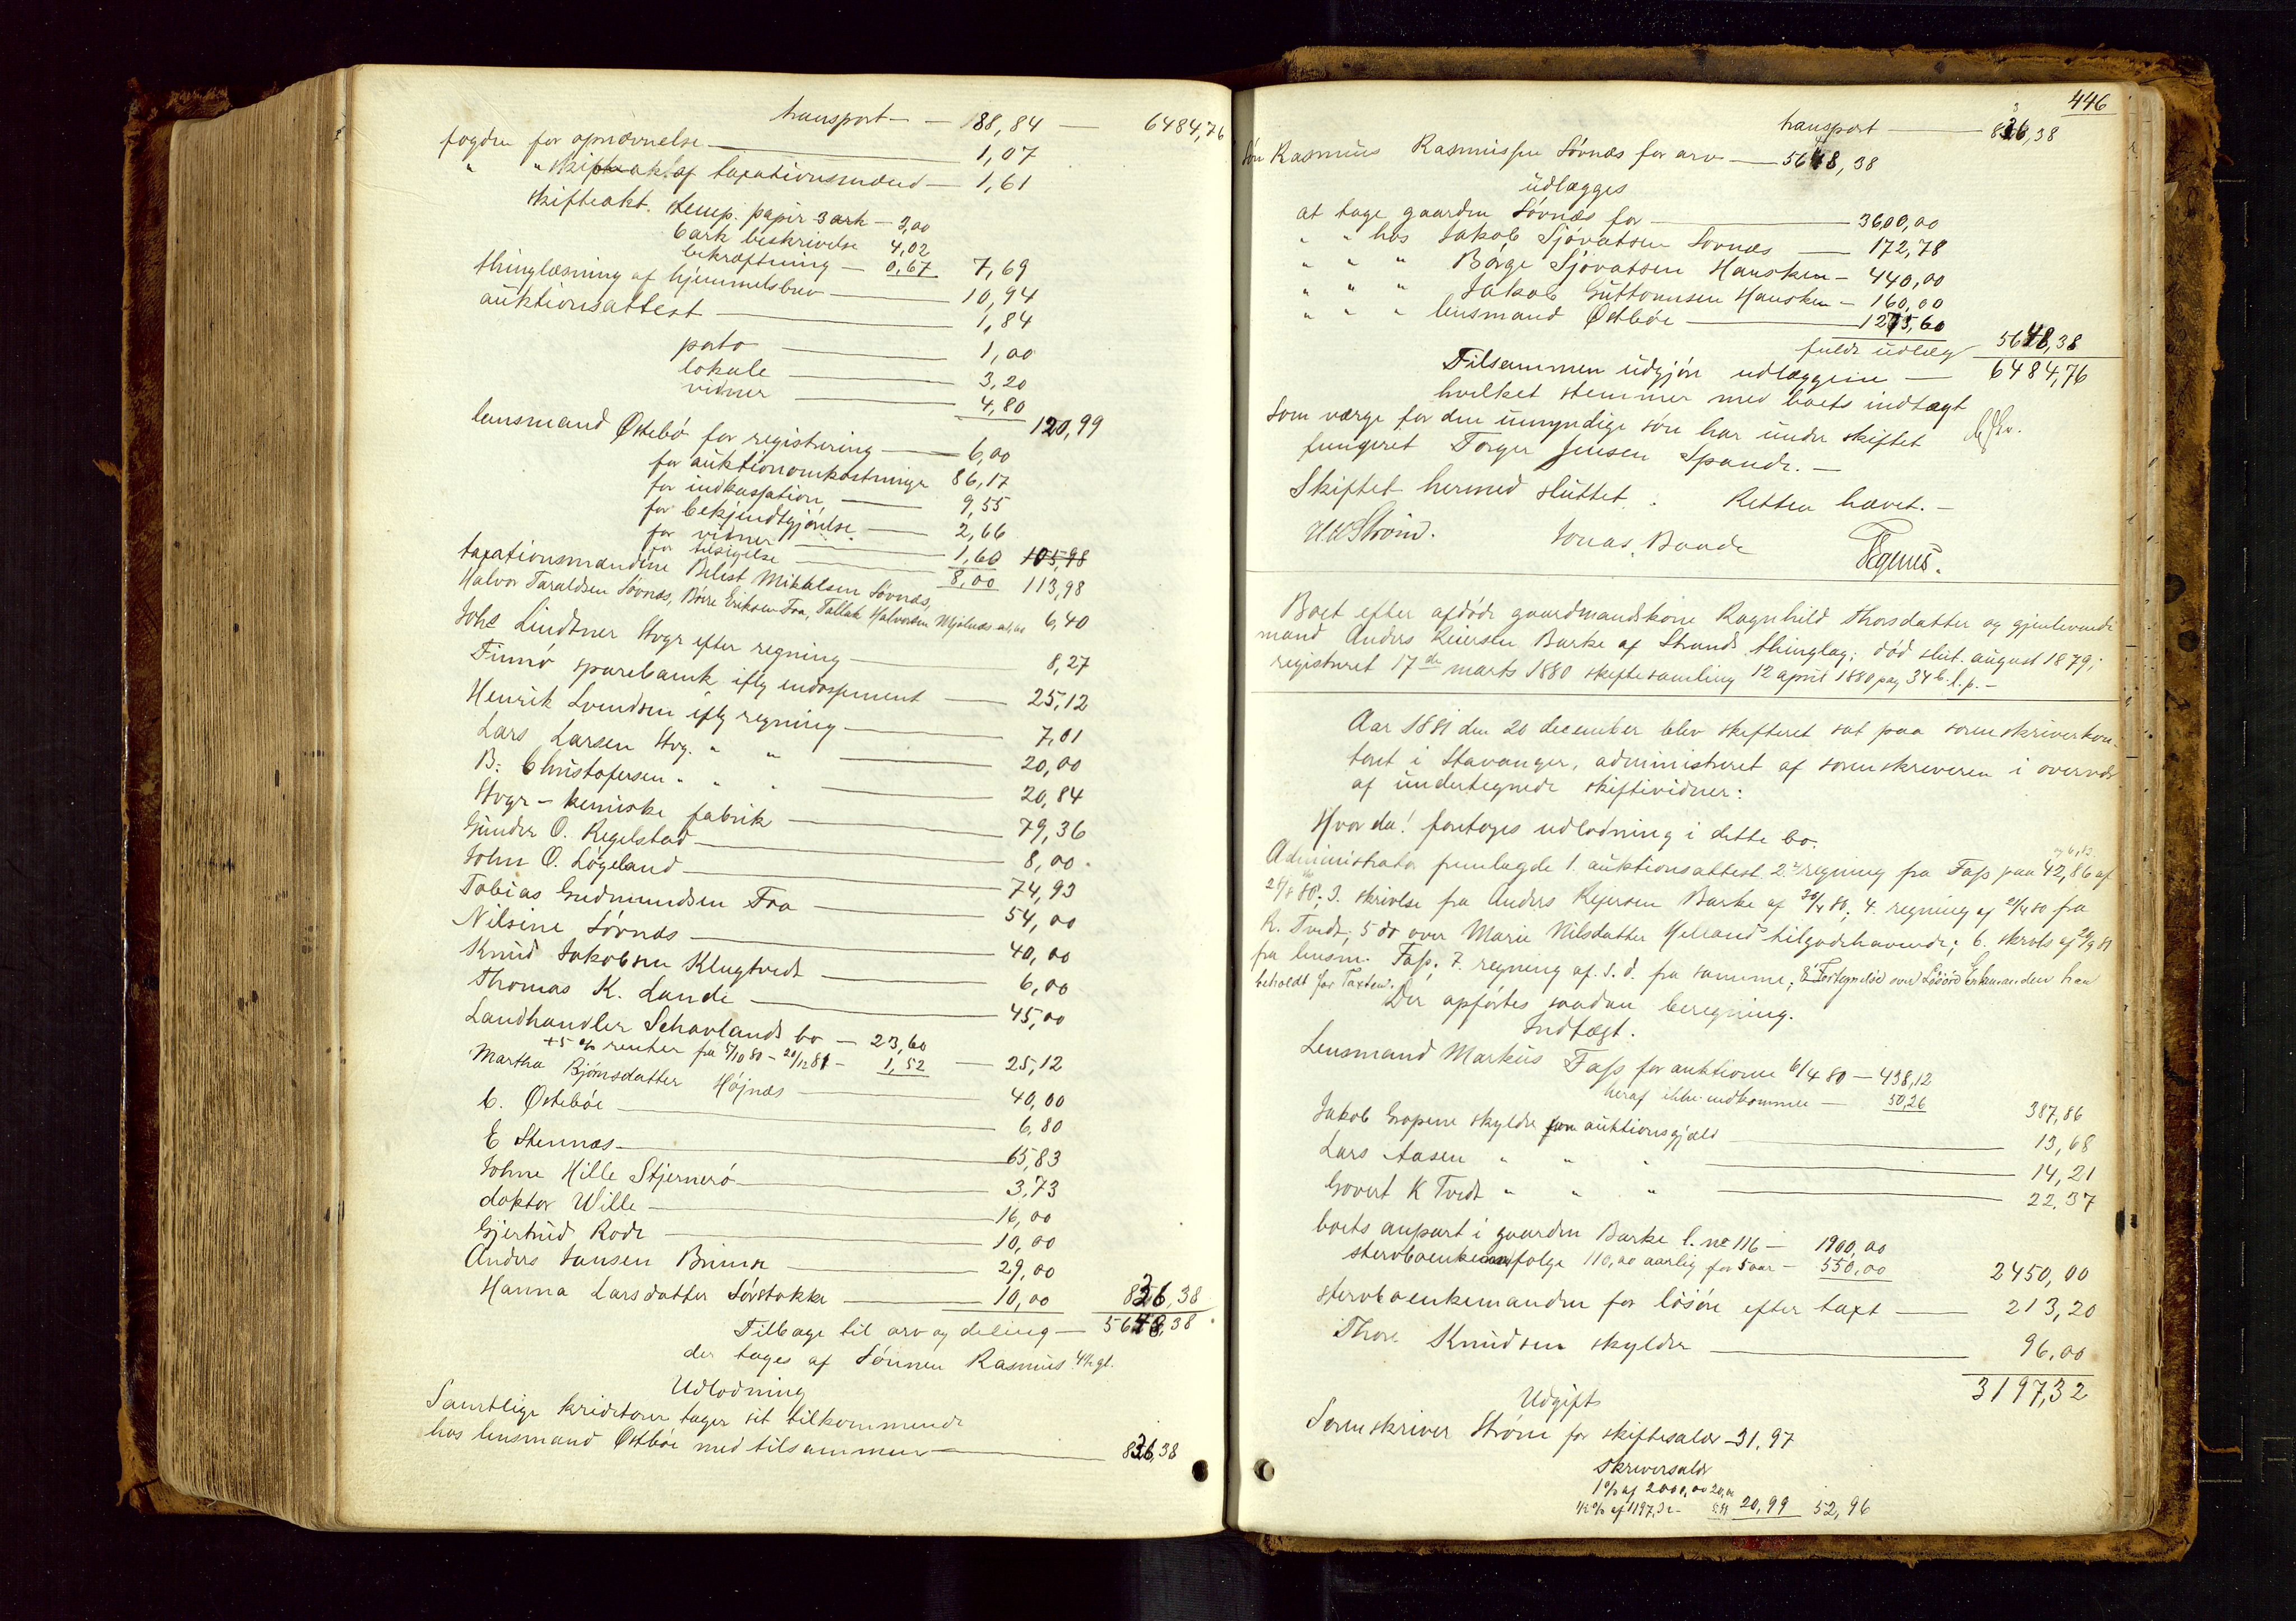 transport — 88,84 — 6484,76
fogden for opnævnelse — 1,07
" " af taxationsmænd — 1,61
skifteakt. stemp. papir 3 ark — 3,00
6 ark beskrivelse 4,02
bekræftning — 0,67 7,69
thinglæsning af hjemmelsbrev — 10,94
auktionsattest — 1,84
porto — 1,00
lokale — 3,20
vidner — 4,80
120,99
lensmand Østebø for registrering — 6,00
for auktionomkostninger 86,17
for indkassation — 9,55
for bekjendtgjørelse — 2,66
for vidner — 1,60 105,98
for tilsigelse — 8,00 113,98
taxationsmændene Belest Mikkelsen Søvnæs,
Halvor Taraldsen Søvnæs, Børre Eriksen Fra, Tallak Halvorsen 6,40
Johs Lindtner Stvgr efter regning — 8,27
Finnø sparebank iflg endossement — 25,12
Henrik Svendsen iflg regning — 7,01
Lars Larsen Stvg. " " — 20,00
B. Christofersen " " " — 20,84
Stvgr - kemiske fabrik — 79,36
Gunder O. Regelstad — 8,00
John O. Løgeland — 74,93
Tobias Gudmundsen Fra — 54,00
Nilsine Søvnæs — 40,00
Knud Jakobsen Klugtvedt — 6,00
Thomas K. Lande — 45,00
Landhandler Schavlands bo — 23,60
+5 % renter fra 5/10 80 - 20/12 81 - 1,52 — 25,12
Martha Bjørnsdatter Højnæs — 40,00
C. Østebøe — 6,80
E Stennæs — 65,83
Johne Hille Stjernerø — 3,73
doktor Wille — 16,00
Gjertrud Rode — 10,00
Anders Jansen Brimse — 29,00
Hanna Larsdatter Sørstokke — 10,00 836,38
Tilbage til arv og deling — 5648,38
der tages af Sønnen Rasmus 4½ gl.
Udlodning
Samtlige kreditorer tager sit tilkommende
hos lensmand Østbøe med tilsammen — 836,38
446
transport — 836,38
Søn Rasmus Rasmussen Søvnæs for arv — 5648,38
udlægges
at tage gaarden Søvnæs for — 3600,00
" " hos Jakob Sjøvatsen Sovnæs — 172,78
" " " Børge Sjøvatsen Hausken — 440,00
" " " Jakob Guttormsen Hausken — 160,00
" " " lensmand Østbøe — 1275,60
fulde udlæg 5648,38
Tilsammen udgjøre udlæggene — 6484,76
hvilket stemmer med boets indtægt
Som værge for den umyndige søn har under skiftet
fungeret Torger Jensen Spande. —
Skiftet hermed sluttet. Retten hævet. —
HWStrøm. Jonas Baade
Boet efter afdøde gaardmandskone Ragnhild Thorsdatter og gjenlevende
mand Anders Reiersen Barke af Strands thinglag; død slut. august 1879;
registreret 17de marts 1880 skiftesamling 12 april 1880 pag 346 l. p. —
Aar 1881 den 20 december blev skifteret sat paa sorenskriverkon-
toret i Stavanger, administreret af sorenskriveren i overvær
af undertegnede skiftevidner:
Hvor da! foretages udlodning i dette bo.
Administrator fremlagde 1. auktionsattest 2. regning fra Fass paa 42,86 af
28/8 80; 3. skrivelse fra Anders Rejersen Barke af 30/4 80; 4. regning af 21/4 80 fra
R. Tvedt; 5 do over Marie Nilsdatter Helland's tilgodehavende; 6. skrivelse af 20/9 81
fra lensm. Fass; 7. regning af s. d. fra samme; 8 Fortegnelse over Løsøre Enkemanden har
beholdt for Taxten.
Der opførtes saadan beregning.
Indtægt.
Lensmand Markus Fass for auktionen 6/4 80 — 438,12
heraf ikke indkommen — 50,26 387,86
Jakob Gropene skylder auktionsgjæld — 13,68
Lars Aasen " " " — 14,21
Govert K Tvedt " " " — 22,37
boets anpart i gaarden Barke l. no 116 — 1900,00
stervboenkemandfolge 110,00 aarlig for 5 aar — 550,00 2450,00
stervboenkemanden for løsøre efter taxt — 213,20
Thore Knudsen skylder — 96,00
3197,32
Udgift
Sorenskriver Strøm for skiftesalær — 31,97
skriversalær
1 % af 2000,00 20,00
½ % af 1197,32 — 20,99 52,96